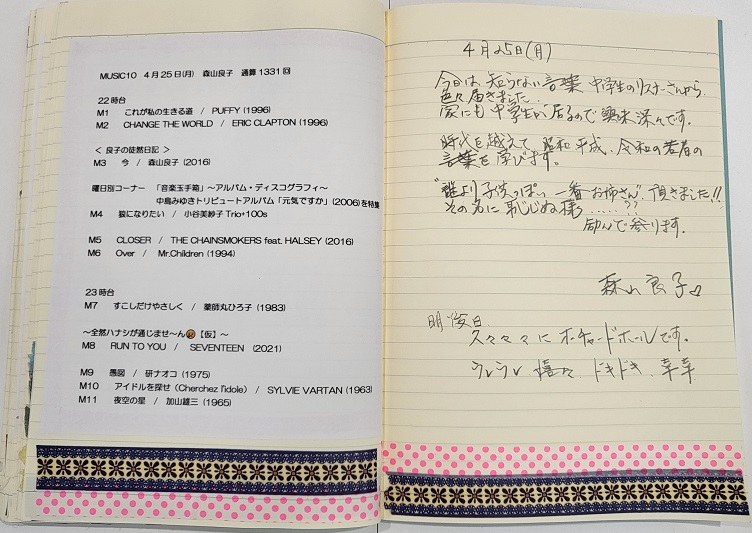 MUSIC10 4月25日(月) 森山良子 通算1331回
22時台
M1 これが私の生きる道 / PUFFY (1996)
M2 CHANGE THE WORLD / ERIC CLAPTON (1996)
< 良子の徒然日記 >
M3 今 / 森山良子 (2016)
曜日別コーナー 「音楽玉手箱」 ~アルバム・ディスコグラフィ~
中島みゆきトリビュートアルバム 「元気ですか」 (2006) を特集
M4 狼になりたい / 小谷美紗子Trio+100s
M5 CLOSER / THE CHAINSMOKERS feat. HALSEY (2016)
M6 Over / Mr.Children (1994)
23時台
M7 すこしだけやさしく / 薬師丸ひろ子 (1983)
~全然ハナシが通じませ~ん【仮】~
M8 RUN TO YOU / SEVENTEEN (2021)
M9 愚図 / 研ナオコ (1975)
M10 アイドルを探せ (Cherchez l'idole) / SYLVIE VARTAN (1963)
M11 夜空の星 / 加山雄三 (1965)
4月25日(月)
今日は 知らない言葉 中学生のリスナーさんから
色々届きました.
家にも中学生が居るので 興味深々です。
時代を越えて、昭和 平成、令和の若者の
言葉を学びます。
"誰より子供っぽい 一番お姉さん" 頂きました!!
その名に恥じぬ様 ......??
励んで参ります。
森山良子
明後日.
久々々々に オーチャードホールです。
ウレウレ 嬉々 ドキドキ. 幸幸